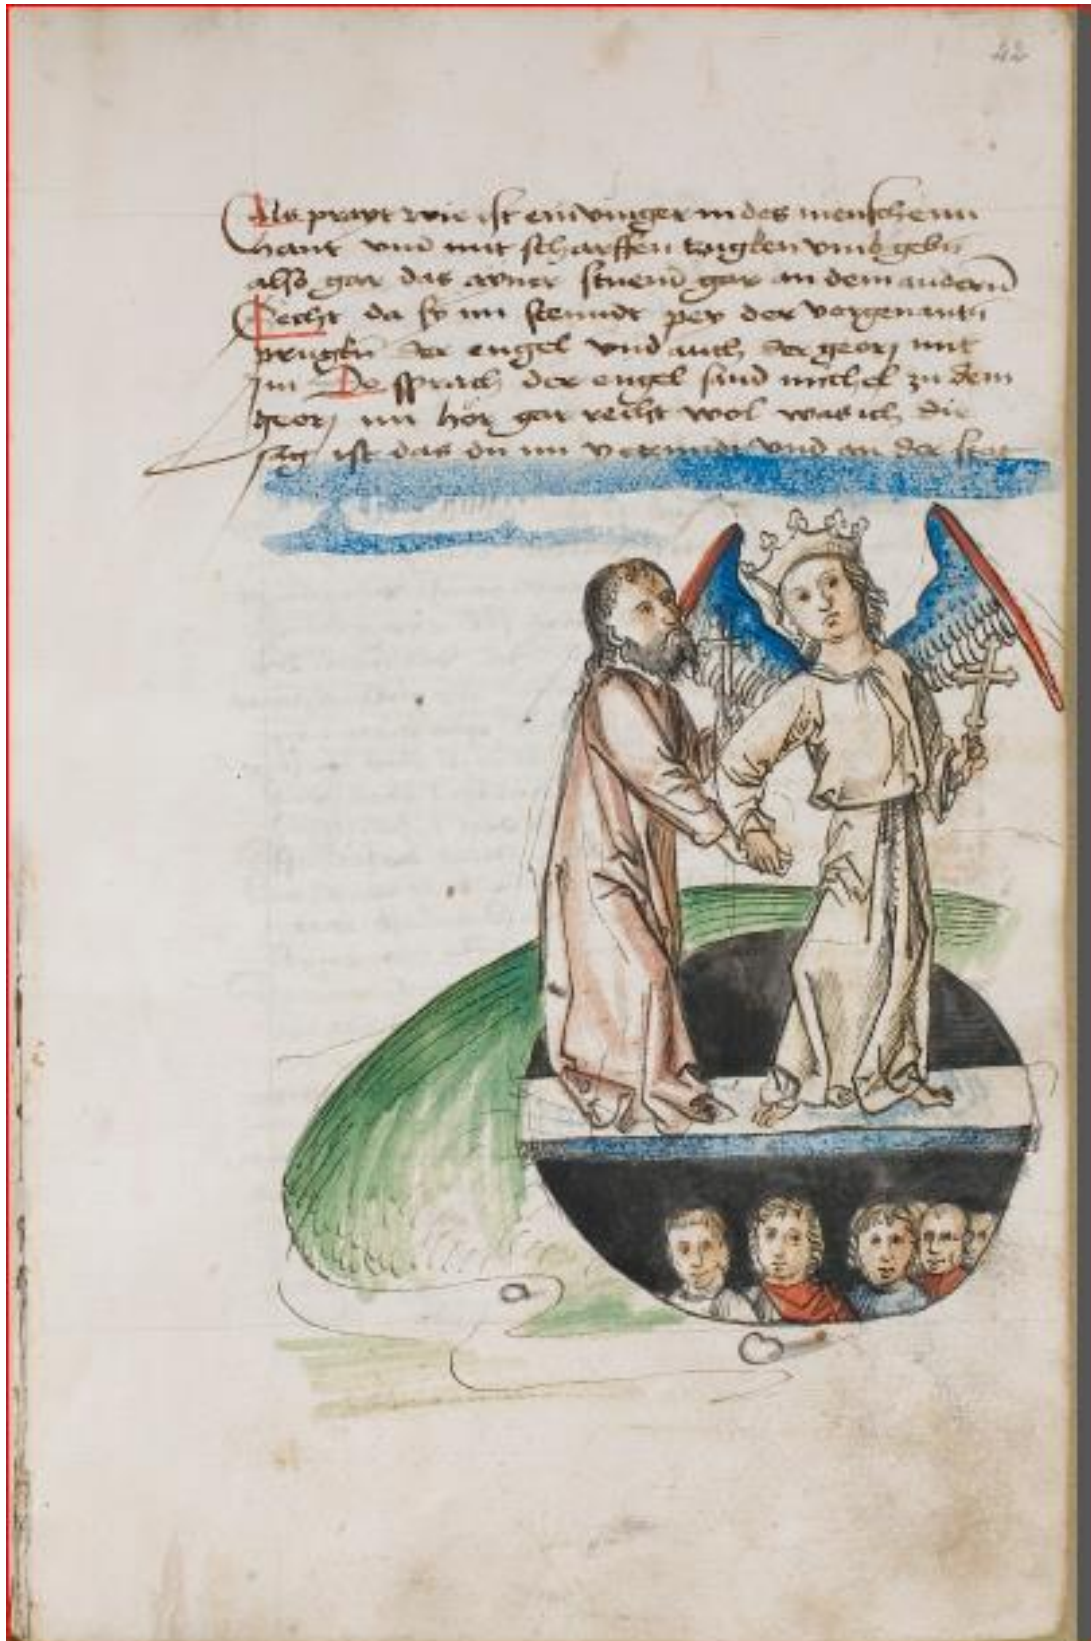 22
Als prayt wie ist ein vinger in des menschenn
hant vnd mit scharffen kuglen vmbgebn
also gar das ayner stuend gar an dem andern
Secht da sy nu stenndt pey der vorgenantn
prugkn der engel vnd auch der georj mit
im Do sprach der engel sand michel zu dem
georj nu hör gar recht wol was ich dir
sag ist das du nu vermidt vnd an der stat